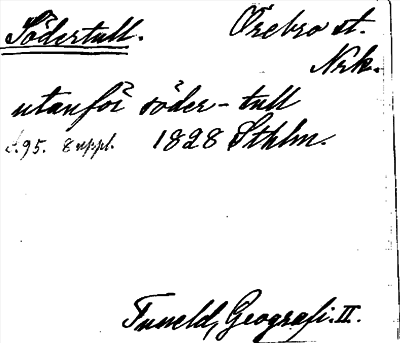 Södertull. Örebro st.
Nrk.
utanför söder-tull
s. 95. 8 uppl. 1828 Sthlm.
Tuneld, Geografi. II.